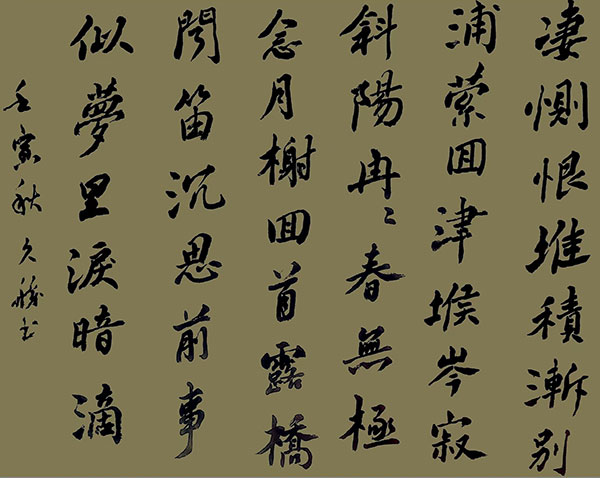 凄惻恨堆積漸別
浦縈回津堠岑寂
斜陽冉〻春無極
念月榭回首露橋
聞笛沉思前事
似夢里淚暗滴
壬寅秋 久书